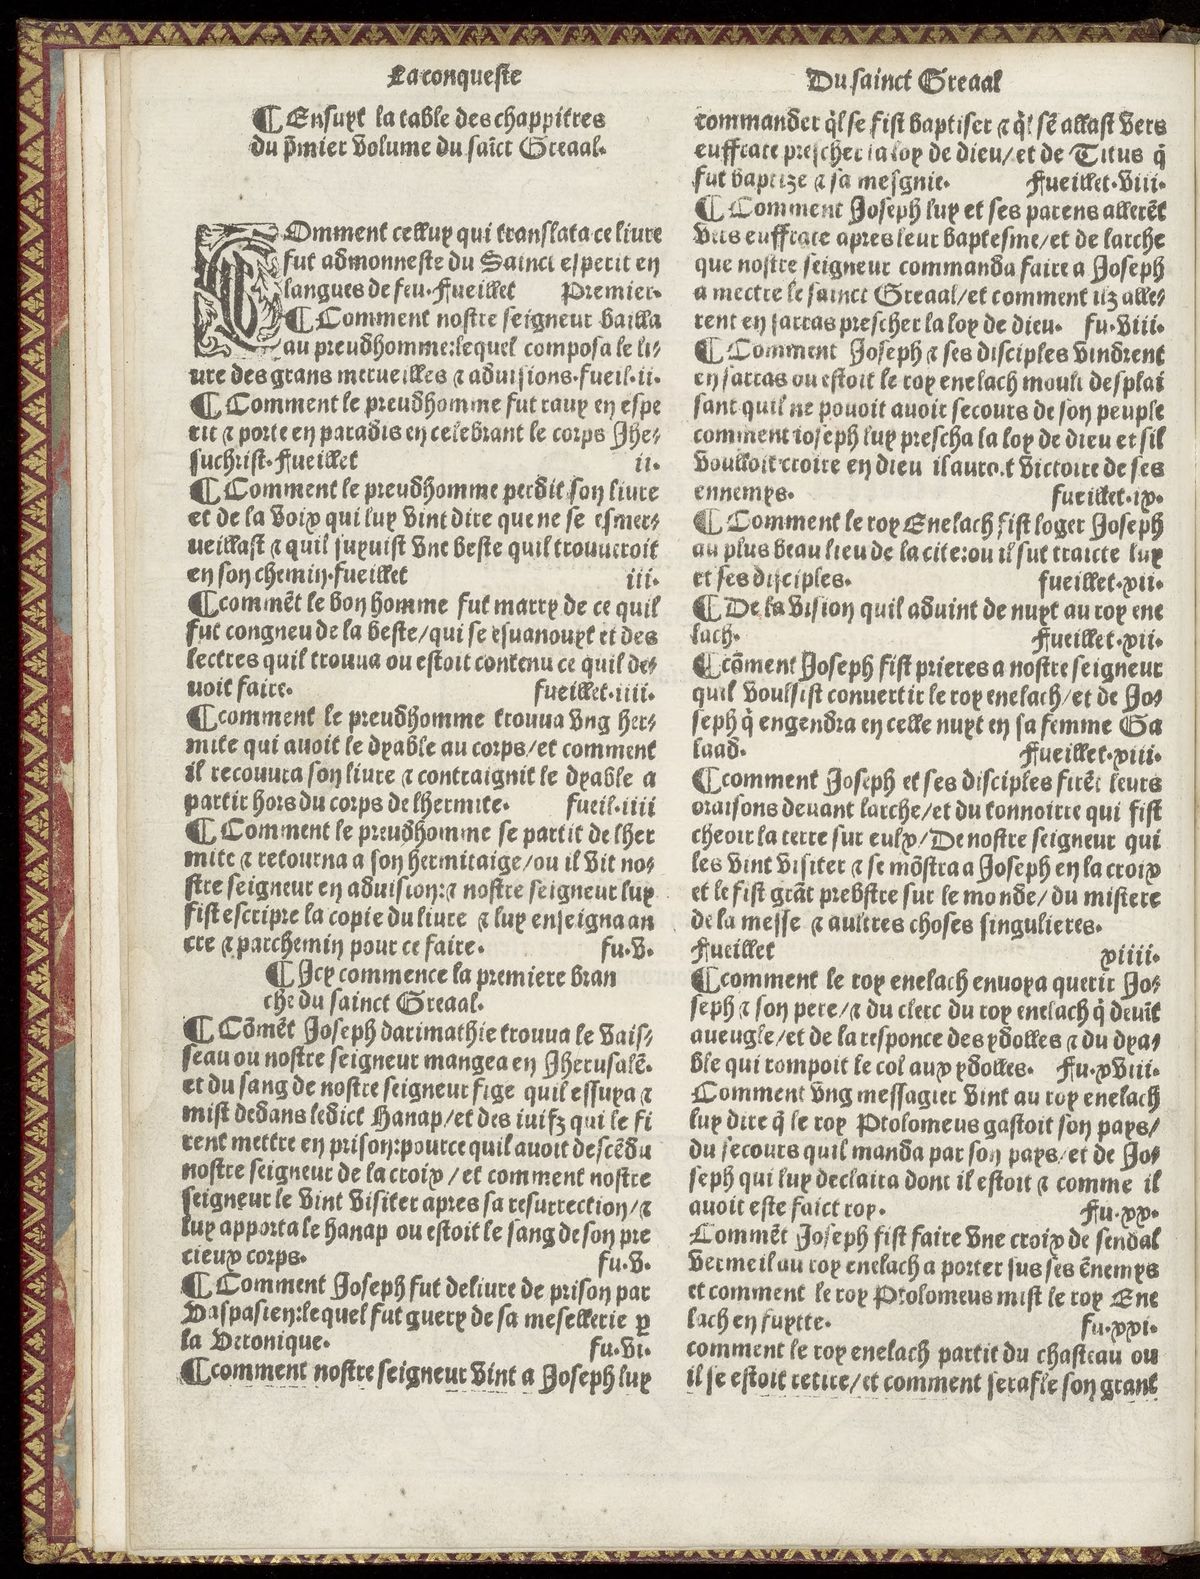 La conqueste
¶ Ensuyt la table des chappitres
du p̄mier volume du sai̅ct Greaal.
Comment celluy qui translata ce livre
fut admonneste du Sainct esperit en
langues de feu. Fueillet Premier.
¶ Comment nostre seigneur bailla
au preudhomme:lequel composa le li-
ure des grans merueilles ⁊ aduisions.fueil.ii.
¶ Comment le preudhomme fut rauy en espe
rit ⁊ porte en paradis en celebrant le corps Jhe-
suchrist. Fueillet ii.
¶ Comment le preudhomme perdit son liure
et de la voix qui luy vint dire que ne se esmer-
ueillast ⁊ quil suyuist vne beste quil trouueroit
en son chemin.fueillet iii.
¶ comme̅t le bon homme fut marry de ce quil
fut congneu de la beste/qui se esuanouyt et des
lectres quil trouua ou estoit contenu ce quil de-
uoit faire. fueillet.iiii.
¶ comment le preudhomme trouua vng her-
mite qui auoit le dyable au corps/et comment
il recouura son liure ⁊ contraignit le dyable a
partir hors du corps de lhermite. fueil.iiii
¶ Comment le preudhomme se partit de lher
mite ⁊ retourna a son hermitaige/ou il vit no-
stre seigneur en aduision:⁊ nostre seigneur luy
fist escripre la copie du liure ⁊ luy enseigna an
cre ⁊ parchemin pour ce faire. fu.v.
¶ Icy commence la premiere bran
che du sainct Greaal.
¶ Co̅me̅t Joseph darimathie trouua le vais-
seau ou nostre seigneur mangea en Jherusale̅.
et du sang de nostre seigneur fige quil essuya ⁊
mist dedans ledict Hanap/et des iuifz qui le fi
rent mettre en prison:pource quil auoit desce̅du
nostre seigneur de la croix/et comment nostre
seigneur le vint visiter apres sa resurrection/⁊
luy apporta le hanap ou estoit le sang de son pre
cieux corps. fu.v.
¶ Comment Joseph fut deliure de prison par
Vaspasien:lequel fut guery de sa mesellerie ꝑ
la Veronique. fu.vi.
¶ comment nostre seigneur vint a Joseph luy
Du sainct Greaal
commander q̄l se fist baptiser ⁊ q̄l se̅ allast vers
euffrate prescher la loy de dieu/et de Titus q̄
fut baptize ⁊ sa mesgnie. Fueillet.viii.
¶ Comment Joseph luy et ses parens allere̅t
vers euffrate apres leur baptesme/et de larche
que nostre seigneur commanda faire a Joseph
a mectre le sainct Greaal/et comment ilz alle-
rent en sarras prescher la loy de dieu. fu.viii.
¶ Comment Joseph ⁊ ses disciples vindrent
en sarras ou estoit le roy enelach moult desplai
sant quil ne pouoit auoir secours de son peuple
comment ioseph luy prescha la loy de dieu et sil
voulloit croire en dieu il auroit victoire de ses
ennemys. fueillet.ix.
¶ Comment le roy Enelach fist loger Joseph
au plus beau lieu de la cite:ou il fut traicte luy
et ses disciples. fueillet.xii.
¶ De la vision quil aduint de nuyt au roy ene
lach. Fueillet.xii.
¶ co̅ment Joseph fist prieres a nostre seigneur
quil voulsist conuertir le roy enelach/et de Jo-
seph q̄ engendra en celle nuyt en sa femme Ga
laad. Fueillet.xiii.
¶ comment Joseph et ses disciples fire̅t leurs
oraisons deuant larche/et du tonnoirre qui fist
cheoir la terre sur eulx/De nostre seigneur qui
les vint visiter ⁊ se mo̅stra a Joseph en la croix
et le fist gra̅t prebstre sur le monde/du mistere
de la messe ⁊ aultres choses singulieres.
Fueillet xiiii.
¶ comment le roy enelach enuoya querir Jo-
seph ⁊ son pere/⁊ du clerc du roy enelach q̄ deui̅t
aueugle/et de la responce des ydolles ⁊ du dya-
ble qui rompoit le col aux ydolles. Fu.xviii.
Comment vng messagier vint au roy enelach
luy dire q̄ le roy Ptolomeus gastoit son pays/
du secours quil manda par son pays/et de Jo-
seph qui luy declaira dont il estoit ⁊ comme il
auoit este faict roy. Fu.xx.
Comme̅t Joseph fist faire vne croix de sendal
vermeil au roy enelach a porter sus ses e̅nemys
et comment le roy Ptolomeus mist le roy Ene
lach en fuytte. fu.xxi.
comment le roy enelach partit du chasteau ou
il se estoit retire/et comment serafe son grant